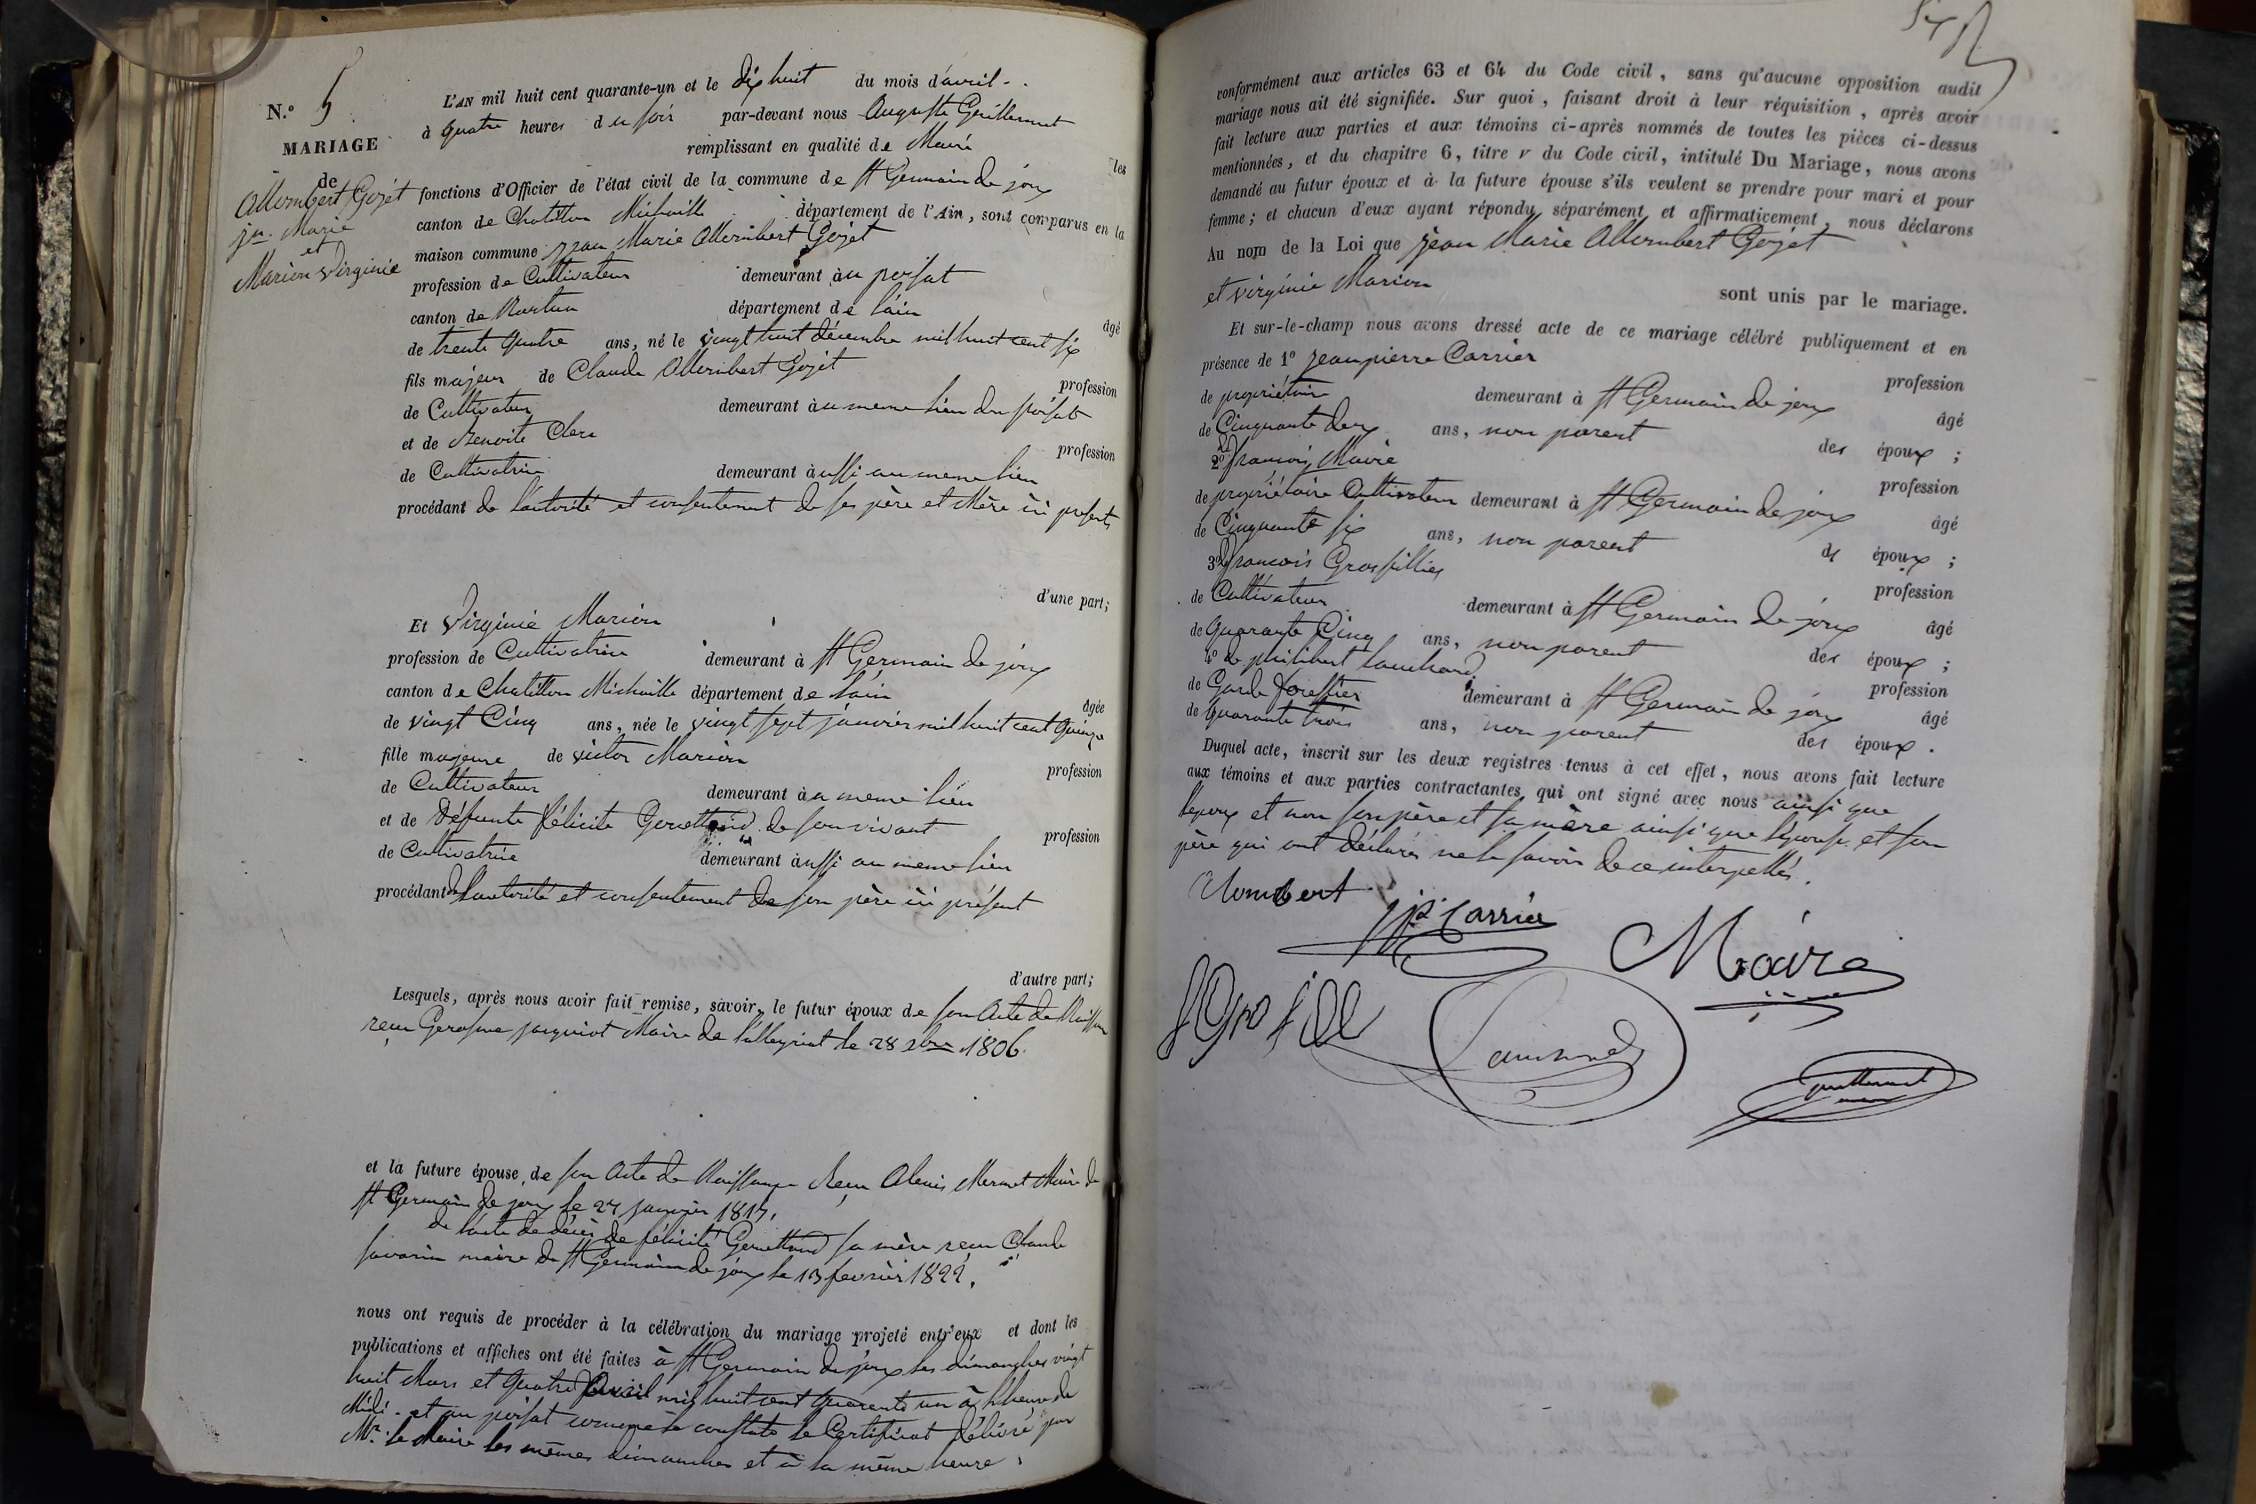 N.º 5
MARIAGE
de
Allombert Gojet
jn. Marie
et
Marion Virginie
L'AN mil huit cent quarante-un et le dix huit du mois d'avril
à quatre heures du soir par-devant nous Auguste Guillermet
remplissant en qualité de Maire les
fonctions d'Officier de l'état civil de la commune de St Germain de joux
canton de Chatillon Michaille département de l'Ain, sont comparus en la
maison commune jean Marie Allombert Gojet
profession de Cultivateur demeurant au poisat
canton de Nantua département de l'ain âgé
de trente quatre ans, né le vingt huit décembre mil huit cent six
fils majeur de Claude Allombert Gojet profession
de Cultivateur demeurant au meme lieu du poisat
et de Benoite Clerc profession
de Cultivatrice demeurant aussi au meme lieu
procédant de l'autorité et consentement de ses père et Mère ici présents
d'une part;
Et Virginie Marion
profession de Cultivatrice demeurant à St Germain de joux
canton de Chatillon Michaille département de l'ain âgée
de vingt Cinq ans, née le vingt sept janvier mil huit cent quinze
fille majeure de victor Marion profession
de Cultivateur demeurant au meme lieu
et de Défunte félicité de son vivant profession
de Cultivatrice demeurant aussi au meme lieu
procédant de l'autorité et consentement de son père ici présent
d'autre part;
Lesquels, après nous avoir fait remise, savoir, le futur époux de son Acte de Naissance
reçu jacquiot Maire de Lalleyriat le 28 1806.
et la future épouse, de son Acte de Naissance Reçu Alexis Mermet Maire de
St Germain de joux le 27 janvier 1815,
de l'acte de décès de félicité sa mère reçu Claude
favarin maire de St Germain de joux le 13 fevrier 1822,
nous ont requis de procéder à la célébration du mariage projeté entr'eux et dont les
publications et affiches ont été faites à St Germain de joux les dimanches vingt
huit Mars et quatre avril mil huit cent quarante un à l'heure de
Midi - et au poisat comme le constate le Certificat délivré par
Mr. le Maire les mêmes dimanches et à la même heure,
conformément aux articles 63 et 64 du Code civil, sans qu'aucune opposition audit
mariage nous ait été signifiée. Sur quoi, faisant droit à leur réquisition, après avoir
fait lecture aux parties et aux témoins ci-après nommés de toutes les pièces ci-dessus
mentionnées, et du chapitre 6, titre v du Code civil, intitulé Du Mariage, nous avons
demandé au futur époux et à la future épouse s'ils veulent se prendre pour mari et pour
femme; et chacun d'eux ayant répondu séparément et affirmativement, nous déclarons
Au nom de la Loi que jean Marie Allombert Gojet
et virginie Marion sont unis par le mariage.
Et sur-le-champ nous avons dressé acte de ce mariage célébré publiquement et en
présence de 1º jean pierre Carrier profession
de propriétaire demeurant à St Germain de joux âgé
de Cinquante deux ans, non parent des époux ;
2º françois Maire profession
de propriétaire Cultivateur demeurant à St Germain de joux âgé
de Cinquante six ans, non parent des époux ;
3º françois Grosfillier profession
de Cultivateur demeurant à St Germain de joux âgé
de quarante Cinq ans, non parent des époux ;
4º de philibert profession
de Garde forestier demeurant à St Germain de joux âgé
de quarante trois ans, non parent des époux.
Duquel acte, inscrit sur les deux registres tenus à cet effet, nous avons fait lecture
aux témoins et aux parties contractantes qui ont signé avec nous ainsi que
l'époux et non son père et sa mère ainsi que l'épouse et son
père qui ont déclaré ne le savoir de ce interpellés.
Alombert
JP Carrier
Maire
Guillermet